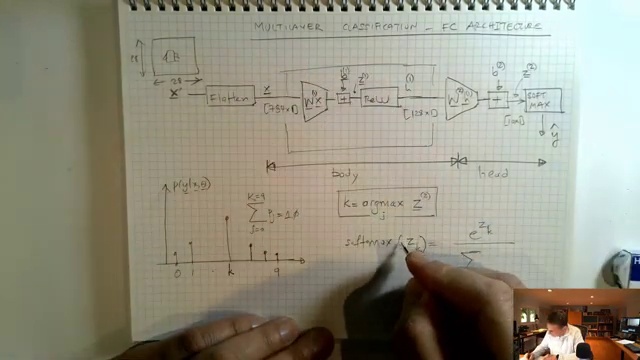 MULTILAYER CLASSIFICATION - FC ARCHITECTURE
28
28
x' Flatten x [784x1] W^(1) x b^(1) + z^(1) ReLU h^(1) [128x1] W^(2) h^(1) b^(2) + z^(2) [10x1] SOFT MAX ŷ
body head
p(y|x, k=9 Σ j=0 = 1.0
k = argmax j z^(2)
0 1 . k 9
softmax (z_k) = e^{z_k} / Σ